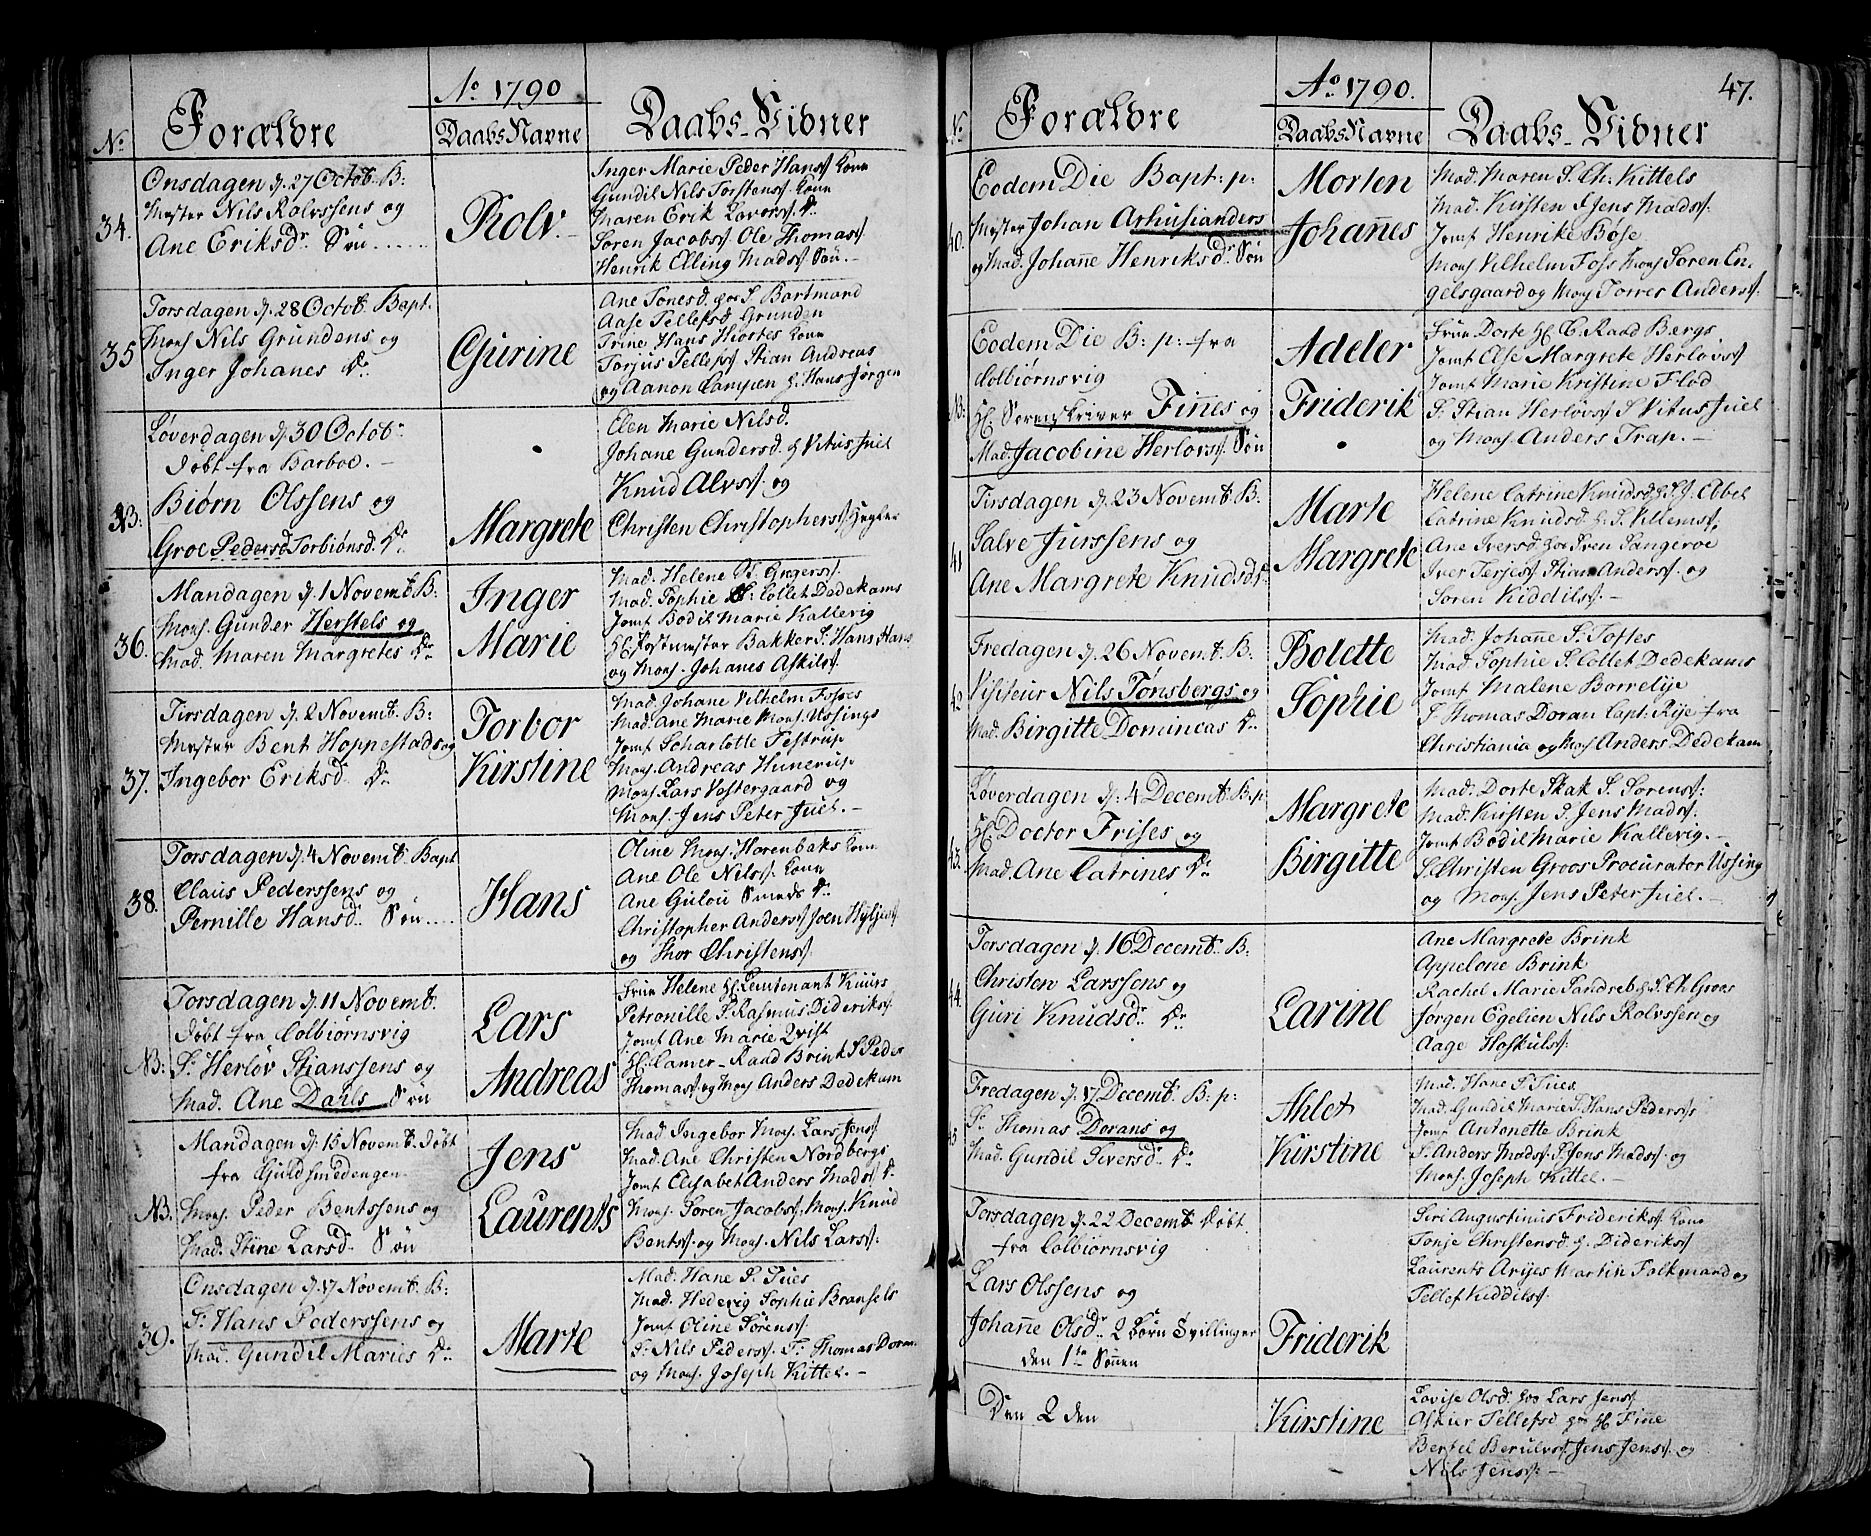 Ao 1790
No Forældre DaabsNavne Daabs-Vidner
34.
Onsdagen d. 27 Octob. B:
Mester Nils Rolvssens og
Ane Eriksdr. Søn
Rolv.
Inger Marie Peder Hans Kone
Gundil Nils Torstens. Kone
Maren Erik Lavers. do
Søren Jacobs. Ole Thomas.
Henrik Elling Mads. Søn.
35
Torsdagen d. 28 Octob. Bapt.
Mons. Nils Grundens og
Inger Johanes Dr.
Gjurine
Ane Tonesd. hos S. Bartmard
Aase Tellefsd. Grunden
Trine Hans Hiortes Kone
Torjus Tellefs. Stian Andreas
og Aanon Campen h. Hans Jørgen
NB:
Løverdagen d. 30 Octob.
Døbt fra Barboe.
Biørn Olssens og
Groe Pedersd Torbiønsd. Dr.
Margrete
Elen Marie Nilsd.
Johane Gundersd. h Vitus Juel
Knud Alvs. og
Christen Christophers. Hegler
36.
Mandagen d. 1 Novemb. B:
Mons. Gunder Herstels og
Mad. Maren Margretes Dr.
Inger
Marie
Mad. Helene
Mad. Sophie S: Collet Dedekams
Jomf Bodil Marie Kallevig
H. Postmester Bakker S. Hans Hans
og Mons. Johanes Askils.
37.
Tirsdagen d. 2 Novemb. B:
Mester Bent Hoppestads og
Ingebor Eriksd. Dr.
Torbor
Kirstine
Mad. Johane Vilhelm Fosses
Mad. Ane Marie Mons. Ussings
Jomf Scharlotte Testrup
Mons. Andreas Hunerup
Mons. Lars Vestergaard og
Mons. Jens Peter Juel.
38.
Torsdagen d. 4 Novemb. Bapt
Claus Pederssens og
Pernille Hansd. Søn
Hans
Oline Mons. Horenbaks Kone
Ane Ole Nils. Kone
Ane Gulou Smeds Dr
Christopher Anders. Joen
og Thor Christens.
NB:
Torsdagen d. 11 Novemb.
Døbt fra Colbiørnsvig
S. Herløv Stianssens og
Mad. Ane Dahls Søn
Lars
Andreas
Frue Helene H. Leutenant Knurs
Petronille S. Rasmus Dideriks.
Jomf Ane Marie Qvist
H. Camer-Raad Brink S Peder
Thomas. og Mons Anders Dedekam
NB.
Mandagen d. 15 Novemb. Døbt
fra Guldsmedengen
Mons. Peder Bentssens og
Mad. Stine Larsd. Søn
Jens
Laurents
Mad Ingebor Mons. Lars Jens.
Mad. Ane Christen Nordbergs
Jomf Elisabet Anders Mads. Dr
Mons. Søren Jacobs. Mons. Knud
Bents. og Mons. Nils Lars.
39.
Onsdagen d. 17 Novemb. B:
S. Hans Pederssens og
Mad. Gundil Maries Dr.
Marte
Mad. Hane S. Tues
Mad. Hedevig Sophie Bransels
Jomf Oline Sørens.
S. Nils Peders. S. Thomas Doran
og Mons. Joseph Kittel.
47.
Ao 1790.
No Forældre DaabsNavne Daabs-Vidner
40.
Eodem Die Bapt: p:
Mester Johan Arhusianders
og Mad. Johañe Henriksdr. Søn
Morten
Johañes
Mad. Maren S. Ch. Kittels
Mad. Kirsten S Jens Mads.
Jomf Henrike Bøse
Mons Vilhelm Foss Mons Søren En-
gelsgaard og Mons Torres Anders.
NB:
Eodem Die B: p: fra
Colbiørnsvig
H. Sorenskriver Fiñes og
Mad. Jacobine Herlovs. Søn
Adeler
Friderik
Frue Dorte H. C. Raad Bergs
Jomf Else Margrete Herløvs.
Jomf Marie Kristine Flod
S. Stian Herløvs. S Vitus Juel
og Mons. Anders Trap.
41
Tirsdagen d. 23 Novemb. B.
Salve Jurssens og
Ane Margrete Knudsds.
Marte
Margrete
Helene Catrine Knudsd. h. S. J. Ebbel
Catrine Knudsd. h. S. Villems.
Ane Iversd. hos Sven Sangeroe
Iver Terjes. Stian Anders. og
Søren Kiddils.
42
Fredagen d. 26 Novemb. B.
Visiteur Nils Tønsbergs og
Mad. Birgitte Domineas Dr.
Bolette
Sophie
Mad. Johañe S. Toftes
Mad Sophie S. Collet Dedekams
Jomf Malene Borrelije
S Thomas Doran Capt: Rije fra
Christiania og Mons Anders Dedekam
43.
Løverdagen d: 4 Decemb. B. p
H. Doctor Frises og
Mad. Ane Catrines Dr
Margrete
Birgitte
Mad. Dorte Skak S. Sørens.
Mad. Kirsten S. Jens Mads.
Jomf Bodil Marie Kallevig.
S. Christen Groos Procurator Ussing
og Mons. Jens Peter Juel.
44.
Torsdagen d. 16 Decemb. B.
Christen Larssens og
Guri Knudsdr. Dr.
Carine
Ane Margrete Brink
Appelone Brink
Rachel Marie Sandreb h S. Ch. Groos
Jørgen Egelien Nils Rolvssen og
Aage Hoskuls.
45
Fredagen d. 17 Decemb. B: p:
S. Thomas Dorans og
Mad. Gundil Siversd. Dr
Ahlet
Kirstine
Mad. Hane S. Tues
Mad. Gundil Marie S. Hans Peders.
Jomf Antonette Brink
S. Anders Mads. S. Jens Mads. og
Mons. Joseph Kittel.
Torsdagen d. 22 Decemb. Døbt
fra Colbiørnsvig
Lars Olssens og
Johañe Olsdr. 2 Børn Tvillinger
den 1ste Sønen
Friderik
Siri Augustinus Frideriks. Kone
Tonje Christensd. h. Dideriks.
Laurents Arijes Martin Falkmand og
Tellef Kiddils.
Den 2den
Kirstine
Lovise Olsd. hos Lars Jens.
Askier Tellefsd. hos H. Fiñe
Bertel Berulvs. Jens Jens. og
Nils Jens.